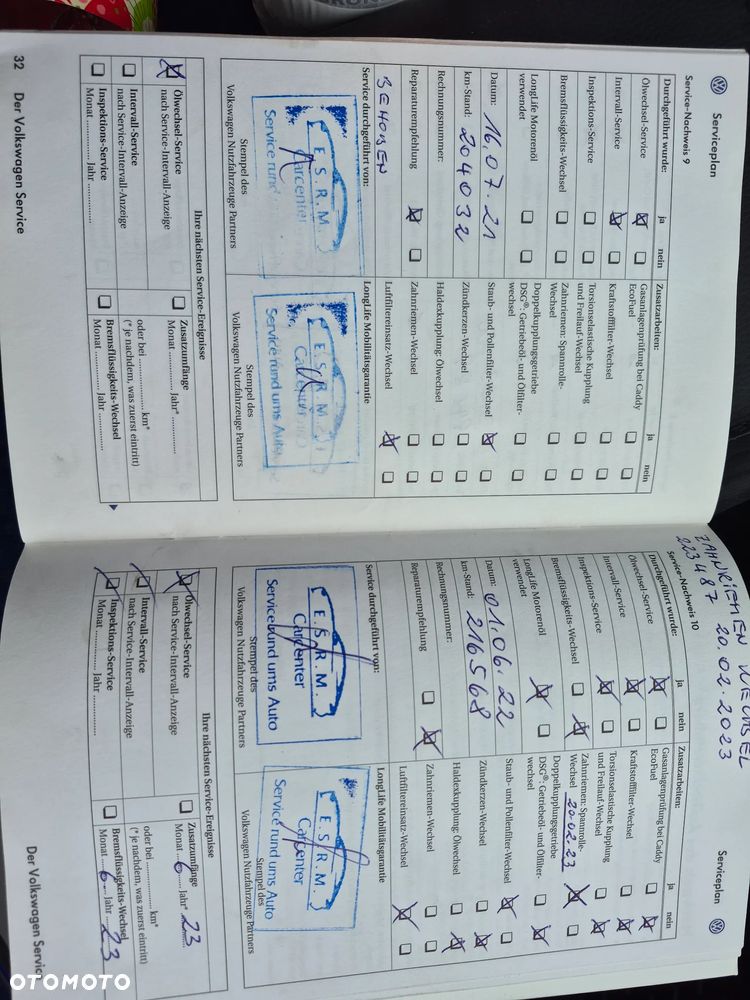 Serviceplan
Service-Nachweis 9
Durchgeführt wurde:
ja
nein
Ölwechsel-Service
Intervall-Service
Inspektions-Service
Bremsflüssigkeits-Wechsel
LongLife Motorenöl
verwendet
Datum: 16.07.21
km-Stand: 204032
Rechnungsnummer:
Reparaturempfehlung
Service durchgeführt von:
E.S.R.M.
Carcenter
Service rund
Stempel des
Volkswagen Nutzfahrzeuge Partners
Zusatzarbeiten:
ja
nein
Gasanlagenprüfung bei Caddy
EcoFuel
Kraftstofffilter-Wechsel
Torsionselastische Kupplung
und Freilauf-Wechsel
Zahnriemen: Spannrolle-
Wechsel
Doppelkupplungsgetriebe
DSG®: Getriebeöl- und Ölfilter-
wechsel
Staub- und Pollenfilter-Wechsel
Zündkerzen-Wechsel
Haldexkupplung: Ölwechsel
Zahnriemen-Wechsel
Luftfiltereinsatz-Wechsel
LongLife Mobilitätsgarantie
E.S.R.M.
Service rund ums Auto
Stempel des
Volkswagen Nutzfahrzeuge Partners
Ihre nächsten Service-Ereignisse
Ölwechsel-Service
nach Service-Intervall-Anzeige
Intervall-Service
nach Service-Intervall-Anzeige
Inspektions-Service
Monat .............. Jahr ..............
Zusatzumfänge
Monat .............. Jahr* ..............
oder bei .............. km*
(* je nachdem, was zuerst eintritt)
Bremsflüssigkeits-Wechsel
Monat .............. Jahr ..............
32 Der Volkswagen Service
ZAHNRIEMEN WECHSEL
223487 20.02.2023
Serviceplan
Service-Nachweis 10
Durchgeführt wurde:
ja
nein
Ölwechsel-Service
Intervall-Service
Inspektions-Service
Bremsflüssigkeits-Wechsel
LongLife Motorenöl
verwendet
Datum: 01.06.22
km-Stand: 216568
Rechnungsnummer:
Reparaturempfehlung
Service durchgeführt von:
E.S.R.M.
Carcenter
Service rund ums Auto
Stempel des
Volkswagen Nutzfahrzeuge Partners
Zusatzarbeiten:
ja
nein
Gasanlagenprüfung bei Caddy
EcoFuel
Kraftstofffilter-Wechsel
Torsionselastische Kupplung
und Freilauf-Wechsel
Zahnriemen: Spannrolle-
Wechsel 20.02.23
Doppelkupplungsgetriebe
DSG®: Getriebeöl- und Ölfilter-
wechsel
Staub- und Pollenfilter-Wechsel
Zündkerzen-Wechsel
Haldexkupplung: Ölwechsel
Zahnriemen-Wechsel
Luftfiltereinsatz-Wechsel
LongLife Mobilitätsgarantie
E.S.R.M.
Carcenter
Service rund ums Auto
Stempel des
Volkswagen Nutzfahrzeuge Partners
Ihre nächsten Service-Ereignisse
Ölwechsel-Service
nach Service-Intervall-Anzeige
Intervall-Service
nach Service-Intervall-Anzeige
Inspektions-Service
Monat .............. Jahr ..............
Zusatzumfänge
Monat 6 Jahr* 23
oder bei .............. km*
(* je nachdem, was zuerst eintritt)
Bremsflüssigkeits-Wechsel
Monat 6 Jahr 23
Der Volkswagen Servic
OTOMOTO